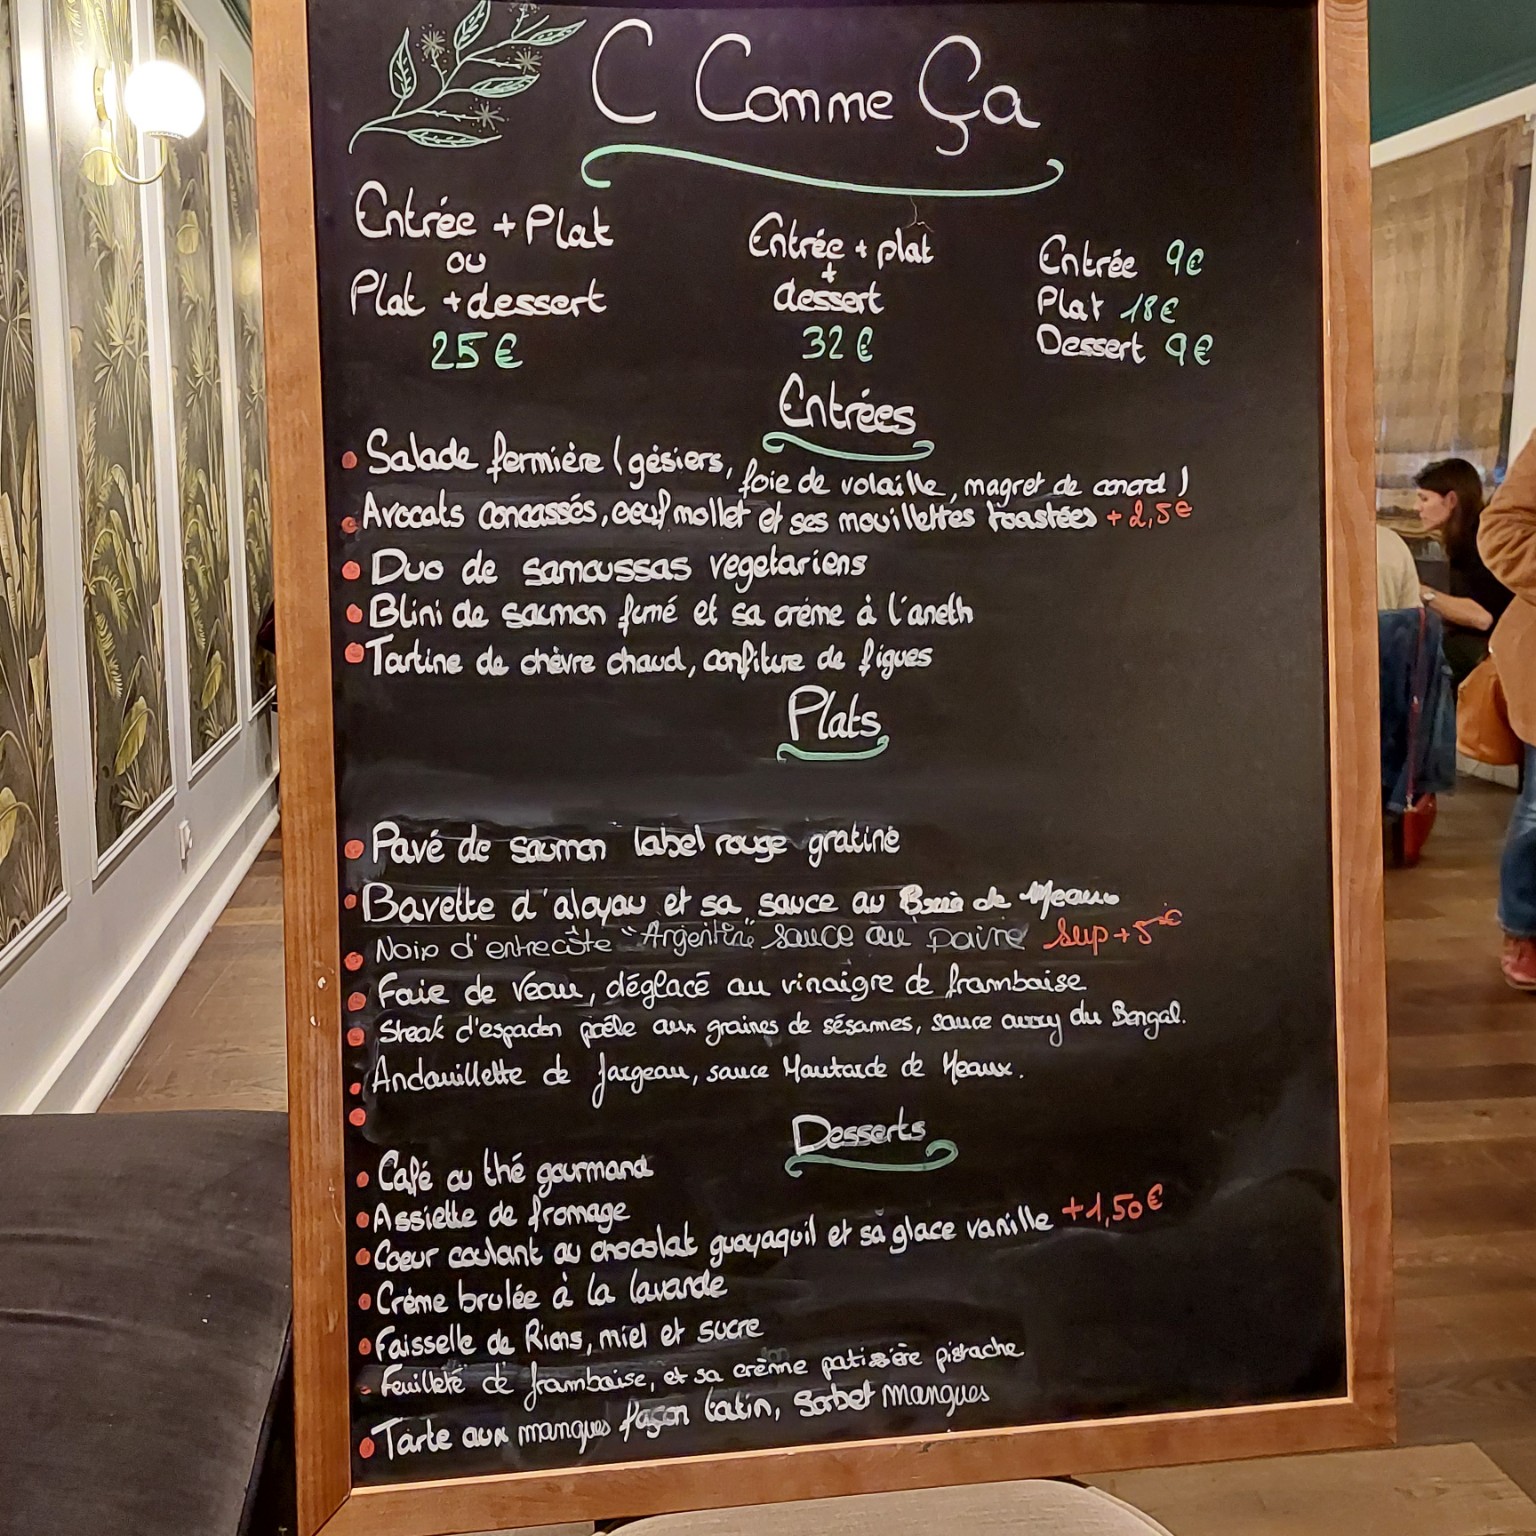 C Comme Ça
Entrée + Plat
ou
Plat + dessert
25 €
Entrée + plat
+
dessert
32 €
Entrée 9€
Plat 18€
Dessert 9€
Entrées
Salade fermière (gésiers, foie de volaille, magret de canard)
Avocats concassés, oeuf mollet et ses mouillettes toastées + 2,5€
Duo de samoussas vegetariens
Blini de saumon fumé et sa crème à l'aneth
Tartine de chèvre chaud, confiture de figues
Plats
Pavé de saumon label rouge gratiné
Bavette d'aloyau et sa sauce au Brie de Meaux
Noix d'entrecôte "Argentine" sauce au poivre Sup + 5€
Foie de Veau, déglacé au vinaigre de framboise
Steak d'espadon poêle aux graines de sésames, sauce curry du Bengal.
Andouillette de Jargeau, sauce Moutarde de Meaux.
Desserts
Café ou thé gourmand
Assiette de fromage
Coeur coulant au chocolat guayaquil et sa glace vanille +1,50€
Crème brulée à la lavande
Faisselle de Rians, miel et sucre
Feuilleté de framboise, et sa crème patissière pistache
Tarte aux mangues façon tatin, Sorbet mangues